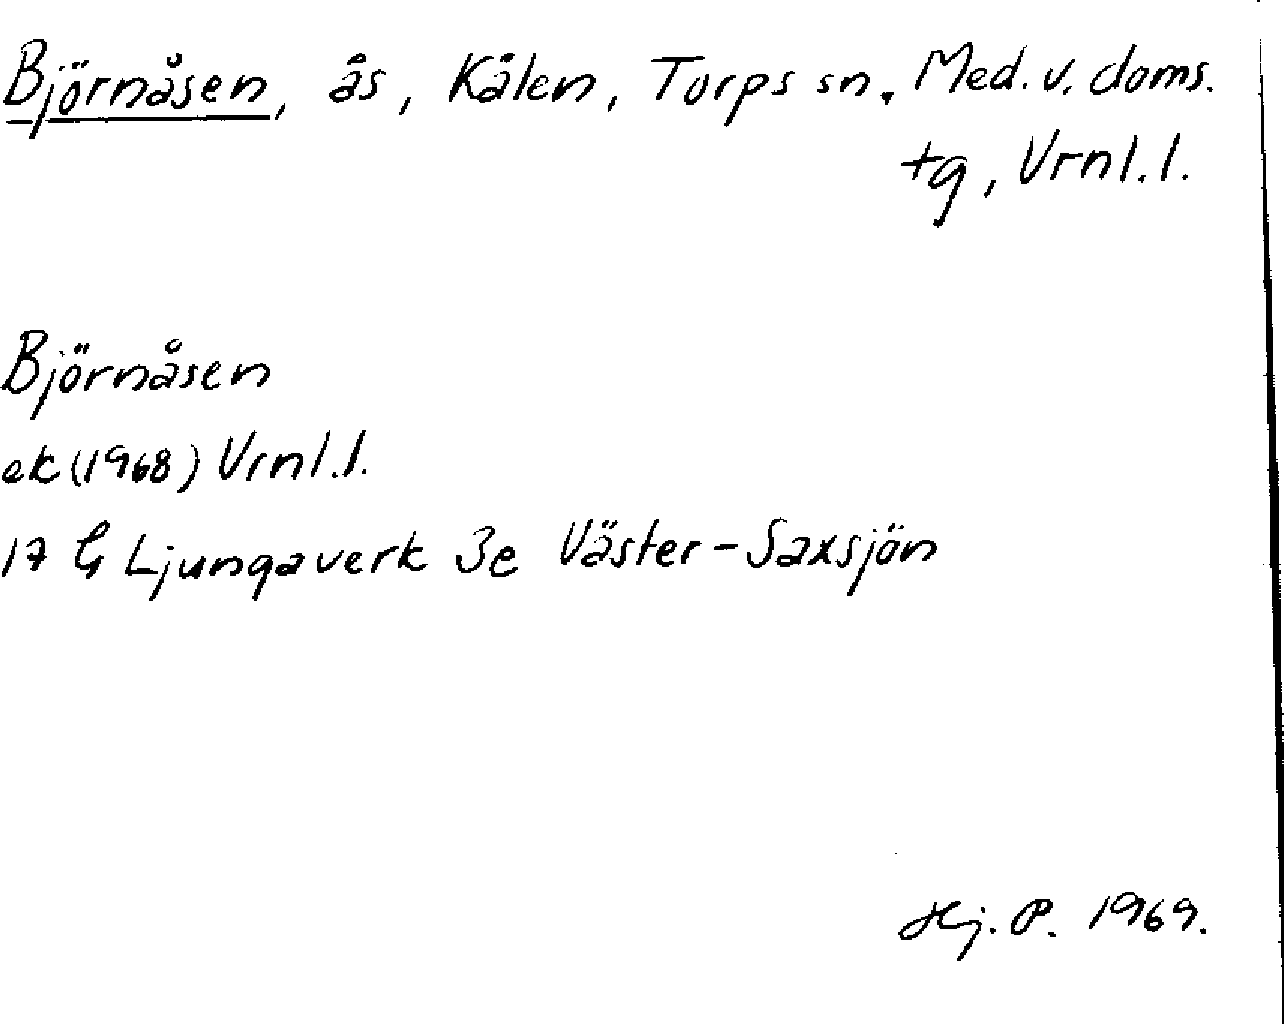 Björnåsen, ås, Kålen, Torps sn, Med. v. doms.
tg, Vrnl. l.
Björnåsen
ek (1968) Vrnl. l.
17 G Ljungaverk 3e Väster-Saxsjön
Hj. P. 1969.